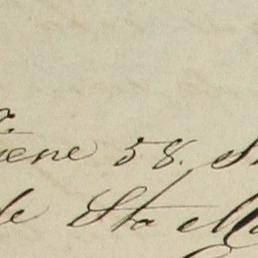 tiene 58.
de Sta Ma